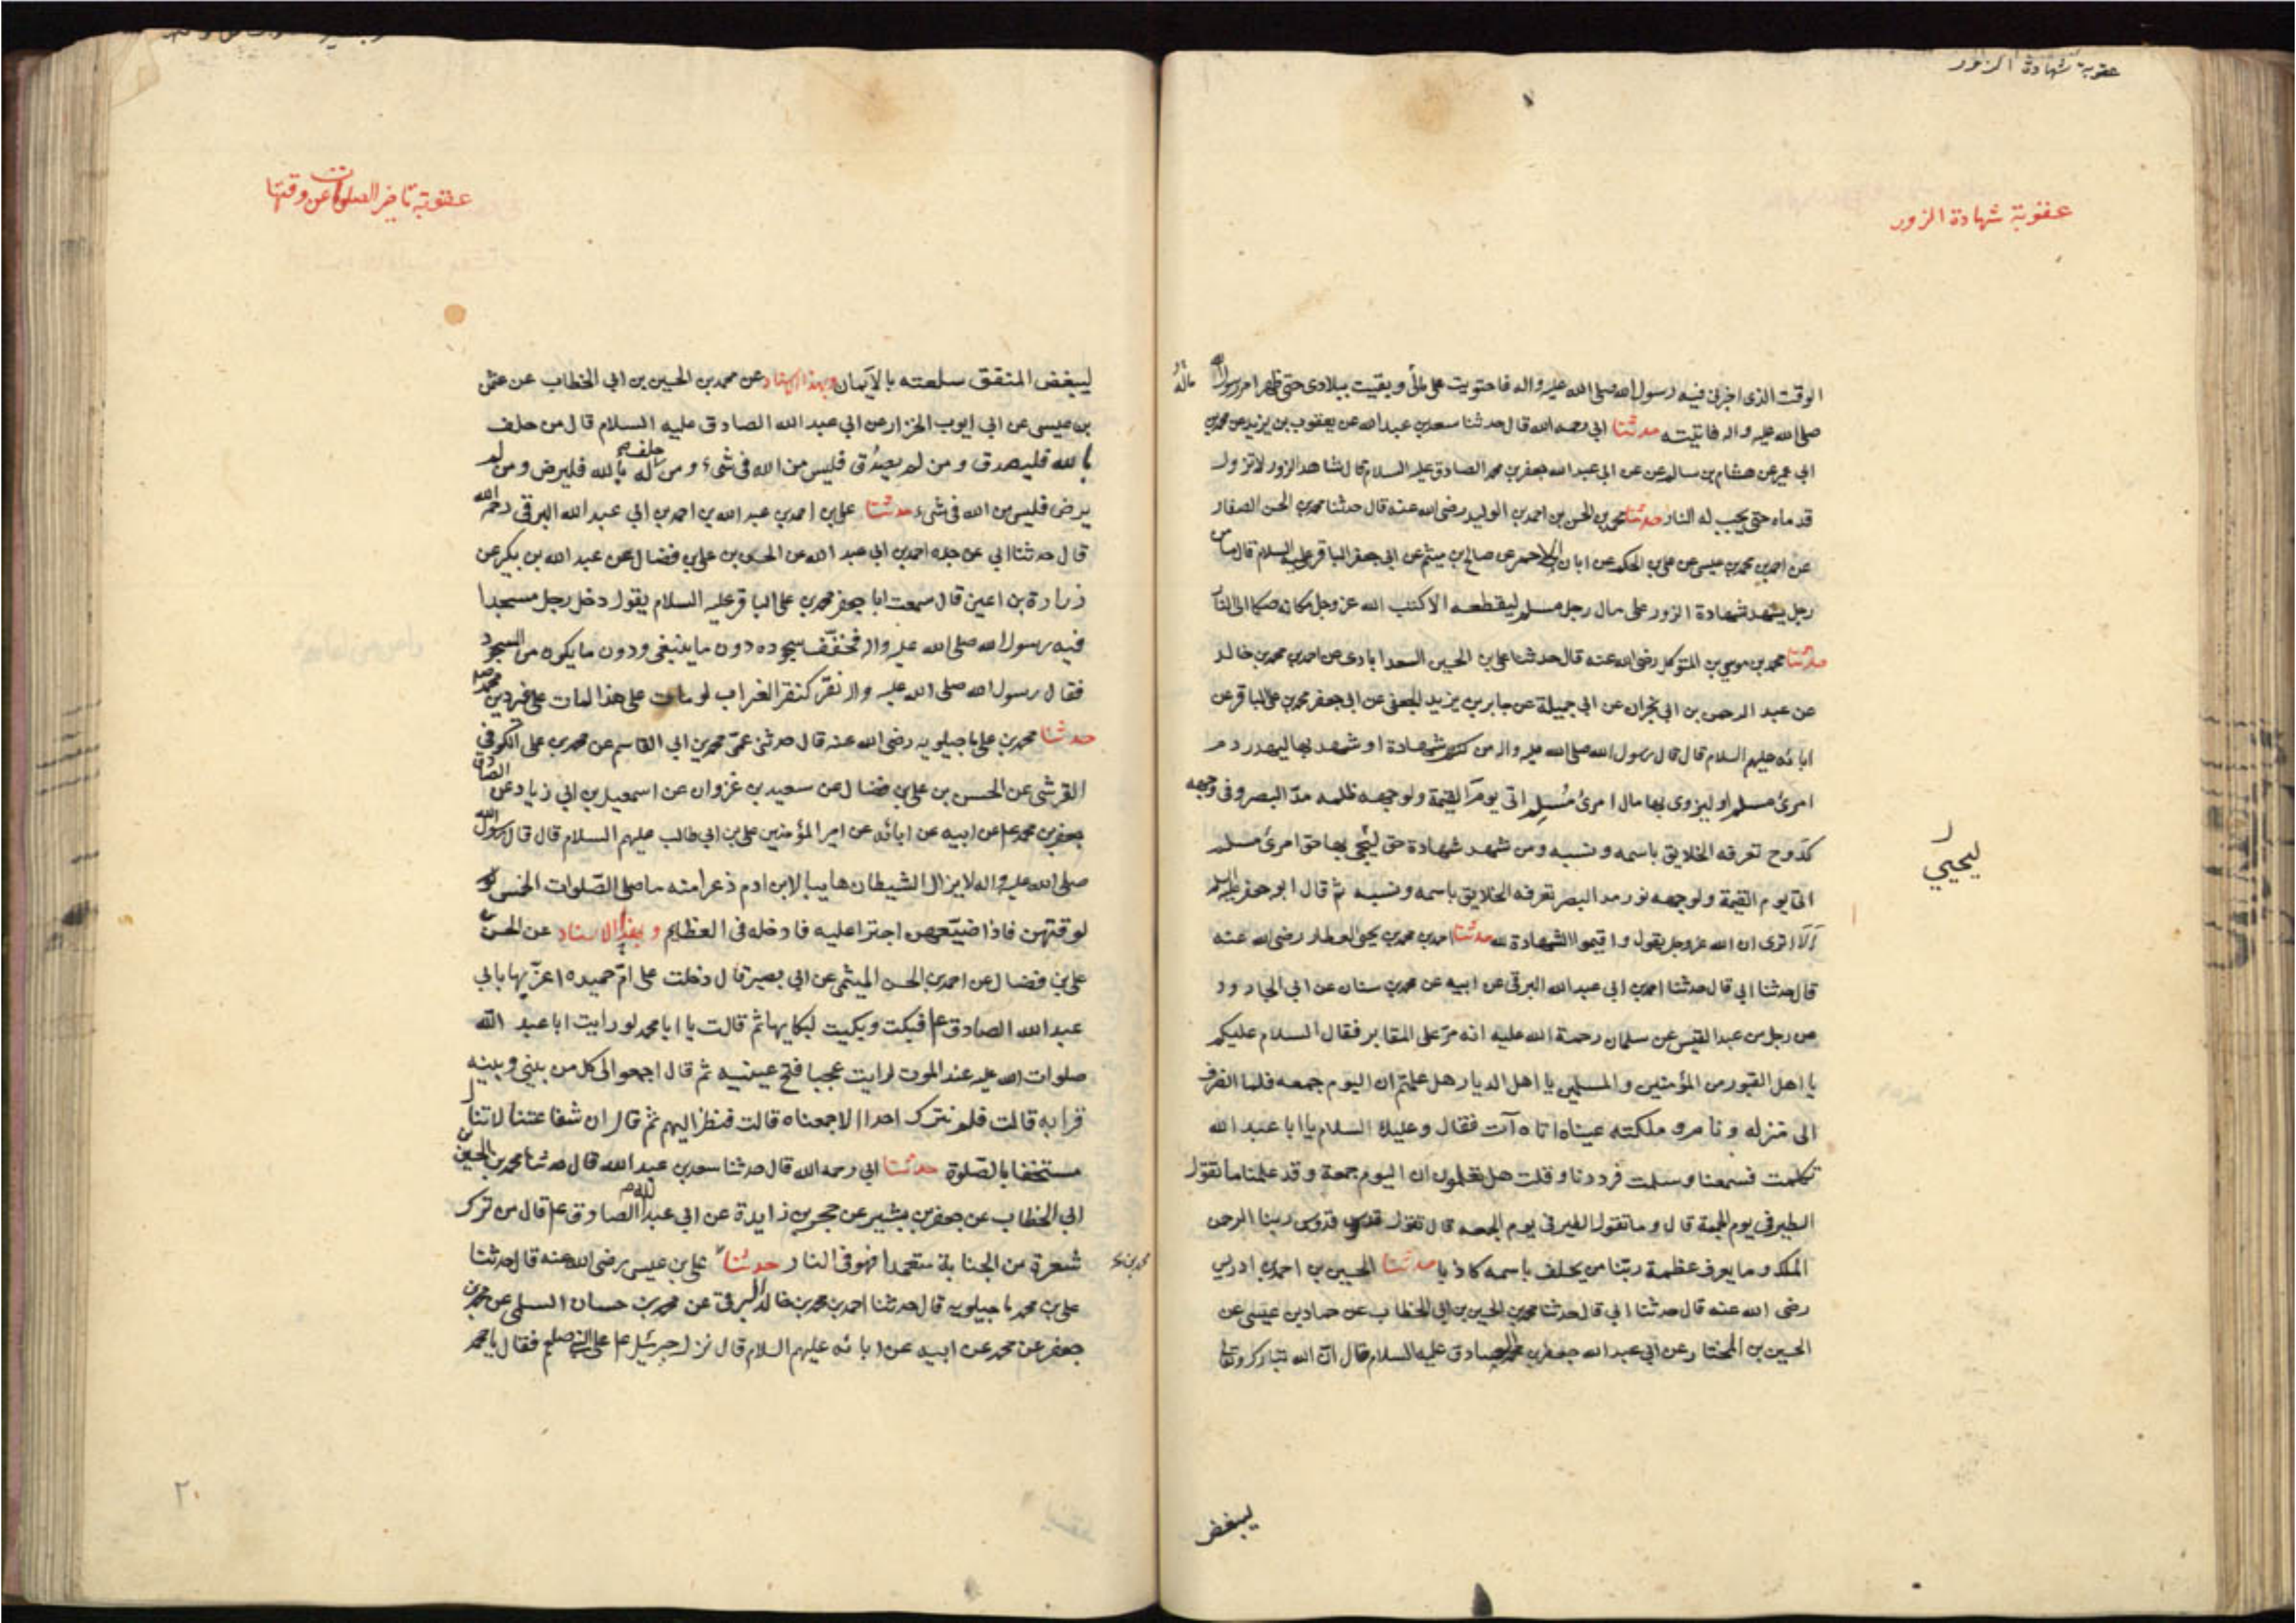 عقوبة شهادة الزور
عقوبة شهادة الزور
الوقت الذى اخبرنى فيه رسول الله صلى الله عليه واله فاحتويت على مالى وبقيت ببلادى حتى ظهر امر رسول الله
صلى الله عليه واله فاتيته حدثنا ابي رحمه الله قال حدثنا سعد بن عبد الله عن يعقوب بن يزيد عن محمد بن
ابي عمير عن هشام بن سالم عن ابي عبد الله جعفر بن محمد الصادق عليه السلام قال شاهد الزور لا تزول
قدماه حتى يجب له النار حدثنا محمد بن الحسن بن احمد بن الوليد رضى الله عنه قال حدثنا محمد بن الحسن الصفار
عن احمد بن محمد بن عيسى عن على بن الحكم عن ابان الاحمر عن صالح بن ميثم عن ابي جعفر الباقر عليه السلام قال ما من
رجل يشهد شهادة الزور على مال رجل مسلم ليقطعه الا كتب الله عز وجل مكانه صكا الى النار
حدثنا محمد بن موسى بن المتوكل رضى الله عنه قال حدثنا على بن الحسين السعدابادى عن احمد بن محمد بن خالد
عن عبد الرحمن بن ابي نجران عن ابي جميلة عن جابر بن يزيد الجعفى عن ابي جعفر محمد بن على الباقر عن
ابائه عليهم السلام قال قال رسول الله صلى الله عليه واله من كتم شهادة او شهد بها ليهدر دم
امرئ مسلم او ليزوى بها مال امرئ مسلم اتى يوم القيمة ولوجهه ظلمه مد البصر وفى وجهه
كدوح تعرفه الخلايق باسمه ونسبه ومن شهد شهادة حق ليحيى بها حق امرئ مسلم
اتى يوم القيمة ولوجهه نور مد البصر تعرفه الخلايق باسمه ونسبه ثم قال ابو جعفر عليه السلم
الا ترى ان الله عز وجل يقول واقيموا الشهادة لله حدثنا احمد بن محمد بن يحيى العطار رضى الله عنه
قال حدثنا ابي قال حدثنا احمد بن ابي عبد الله البرقى عن ابيه عن محمد بن سنان عن ابي الجارود
عن رجل من عبد القيس عن سلمان رحمة الله عليه انه مر على المقابر فقال السلام عليكم
يا اهل القبور من المؤمنين والمسلمين يا اهل الديار هل علمتم ان اليوم جمعه فلما انصرف
الى منزله ونام و ملكته عيناه اتاه آت فقال وعليك السلام يا ابا عبد الله
تكلمت فسمعنا وسلمت فرددنا وقلت هل تعلمون ان اليوم جمعة وقد علمنا ما تقول
الطير فى يوم الجمعة قال وما تقول الطير فى يوم الجمعه قال تقول قدوس قدوس ربنا الرحمن
الملك وما يعرف عظمة ربنا من يحلف باسمه كاذبا حدثنا الحسين بن احمد بن ادريس
رضى الله عنه قال حدثنا ابي قال حدثنا محمد بن الحسين بن ابي الخطاب عن حماد بن عيسى عن
الحسين بن المختار عن ابي عبد الله جعفر بن محمد الصادق عليه السلام قال ان الله تبارك وتعالى
ليحيي
ليبغض
عقوبة تاخير الصلوات عن وقتها
ليبغض المنفق سلعته بالايمان وبهذا الاسناد عن محمد بن الحسين بن ابي الخطاب عن عثمن
بن عيسى عن ابي ايوب الخزاز عن ابي عبد الله الصادق عليه السلام قال من حلف
بالله فليصدق ومن لم يصدق فليس من الله فى شىء ومن حلف له بالله فليرض ومن لم
يرض فليس من الله فى شىء حدثنا على بن احمد بن عبد الله بن احمد بن ابي عبد الله البرقى رحمه الله
قال حدثنا ابي عن جده احمد بن ابي عبد الله عن الحسن بن على بن فضال عن عبد الله بن بكير عن
زرارة بن اعين قال سمعت ابا جعفر محمد بن على الباقر عليه السلام يقول دخل رجل مسجدا
فيه رسول الله صلى الله عليه واله فخفف سجوده دون ما ينبغى ودون ما يكون من السجود
فقال رسول الله صلى الله عليه واله نقر كنقر الغراب لو مات على هذا لمات على غير دين محمد
حدثنا محمد بن على ماجيلويه رضى الله عنه قال حدثنى عمى محمد بن ابي القاسم عن محمد بن على الكوفى
القرشى عن الحسن بن على بن فضال عن سعيد بن غزوان عن اسمعيل بن ابي زياد عن الصادق
جعفر بن محمد عن ابيه عن ابائه عن امير المؤمنين على بن ابي طالب عليهم السلام قال قال رسول الله
صلى الله عليه واله لا يزال الشيطان هايبا لابن ادم ذعرا منه ما صلى الصلوات الخمس
لوقتهن فاذا ضيعهن اجترا عليه فادخله فى العظايم وبهذا الاسناد عن الحسن بن
على بن فضال عن احمد بن الحسن الميثمى عن ابي بصير قال دخلت على ام حميده اعزيها بابي
عبد الله الصادق ع فبكت وبكيت لبكايها ثم قالت يا ابا محمد لو رايت ابا عبد الله
صلوات الله عليه عند الموت لرايت عجبا فتح عينيه ثم قال اجمعوا الى كل من بينى وبينه
قرابه قالت فلم نترك احدا الا جمعناه قالت فنظر اليهم ثم قال ان شفاعتنا لا تنال
مستخفا بالصلوة حدثنا ابي رحمه الله قال حدثنا سعد بن عبد الله قال حدثنا محمد بن الحسين بن
ابي الخطاب عن جعفر بن بشير عن حجر بن زايدة عن ابي عبد الله الصادق ع قال من ترك
شعرة من الجنابة متعمدا فهو فى النار حدثنا على بن عيسى رضى الله عنه قال حدثنا
على بن محمد ماجيلويه قال حدثنا احمد بن محمد بن خالد البرقى عن محمد بن حسان السلمى عن محمد بن
جعفر عن محمد عن ابيه عن ابائه عليهم السلام قال نزل جبرئيل ع على النبي صلعم فقال يا محمد
٢٠